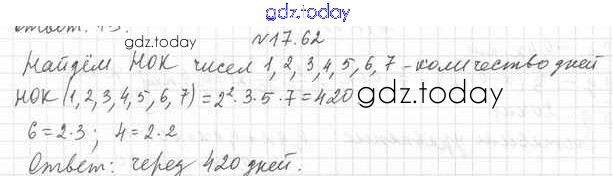 gdz.today
Ответ: 13.
gdz.today
№17.62
Найдём НОК чисел 1, 2, 3, 4, 5, 6, 7 - количество дней
НОК (1, 2, 3, 4, 5, 6, 7) = 2²·3·5·7 = 420
gdz.today
6=2·3; 4=2·2
Ответ: через 420 дней.